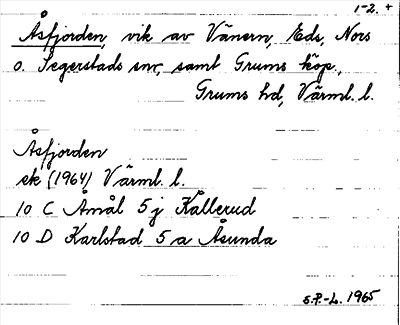 1-2. +
Åsfjorden, vik av Vänern, Eds, Nors
o. Segerstads snr, samt Grums köp.,
Grums hd, Värml. l.
Åsfjorden
ek (1964) Värml. l.
10 C Åmål 5 j Källerud
10 D Karlstad 5 a Åsunda
S.P.-L. 1965